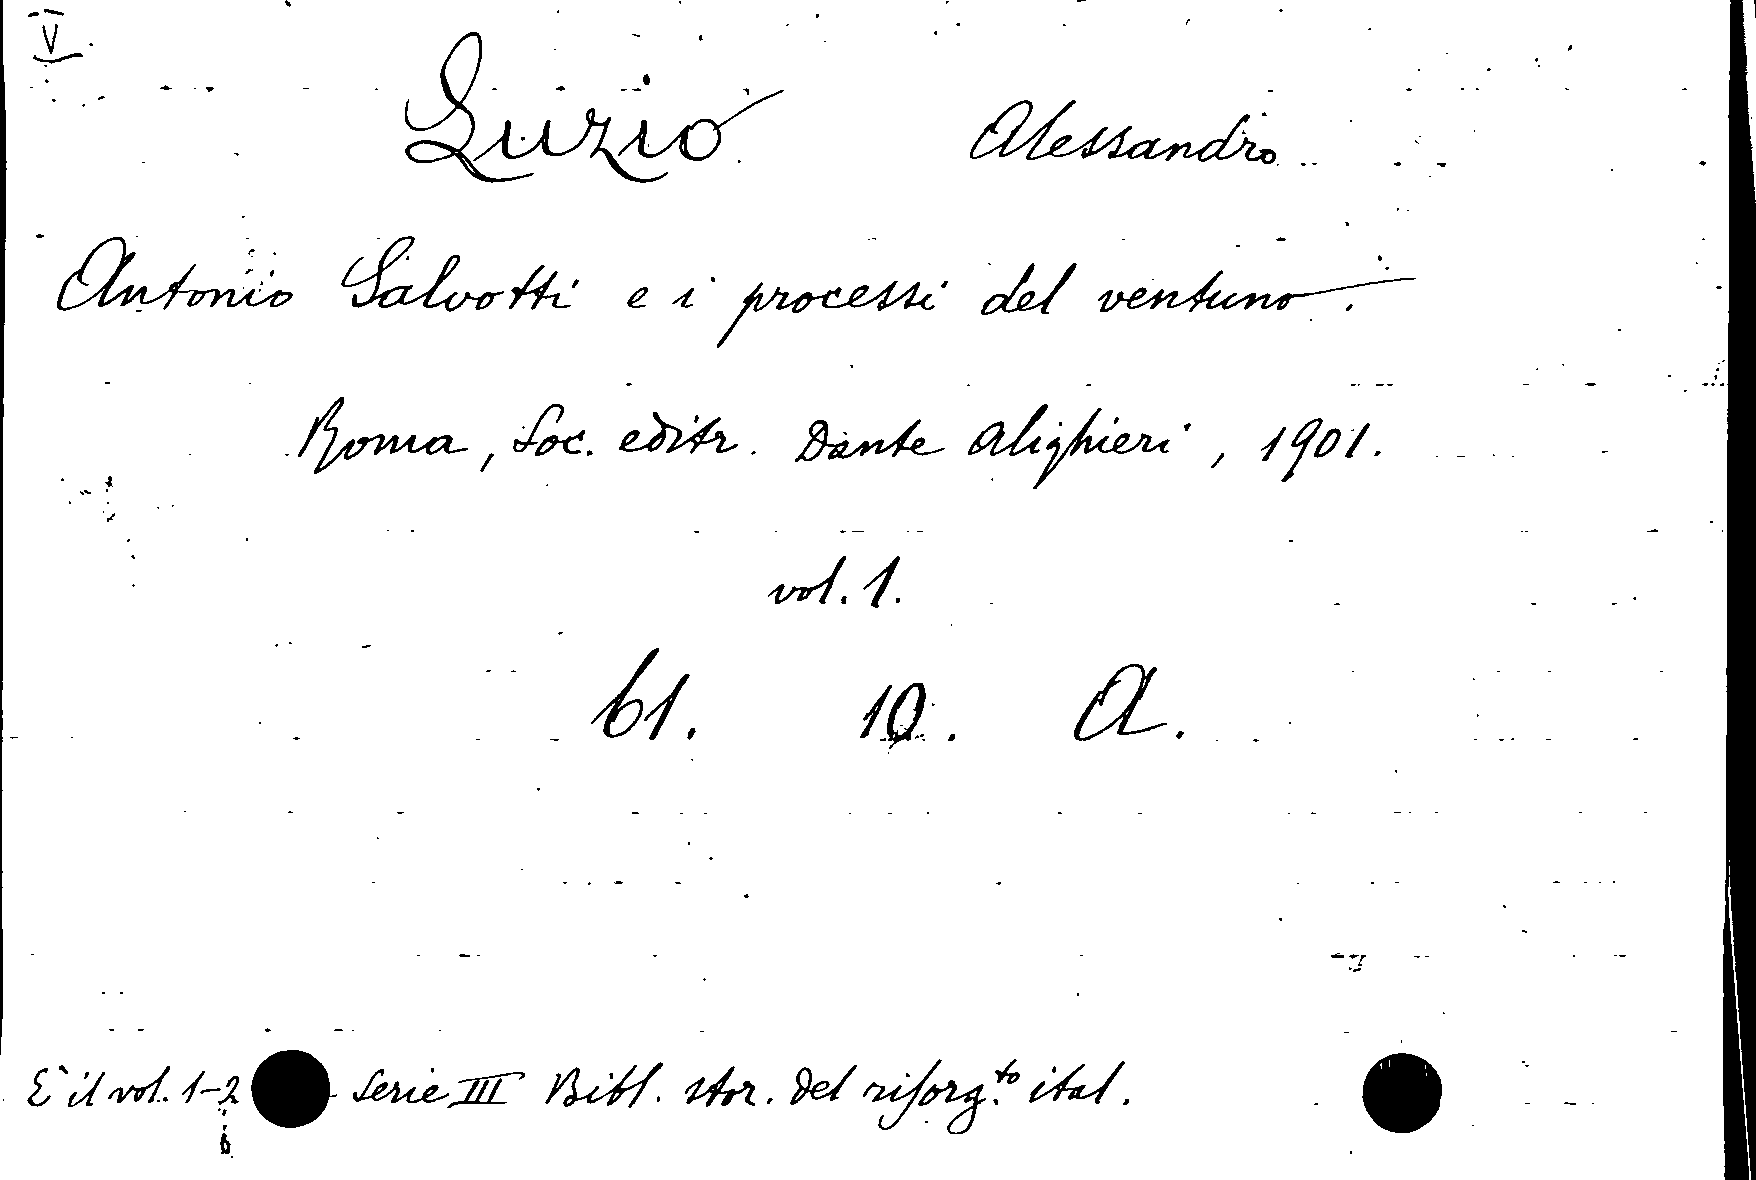 V
Luzio Alessandro
Antonio Salvotti e i processi del ventuno.
Roma, Soc. editr. Dante Alighieri, 1901.
vol. 1.
61. 10. A.
E' il vol. 1-2 Serie III Bibl. stor. del risorg.to ital.